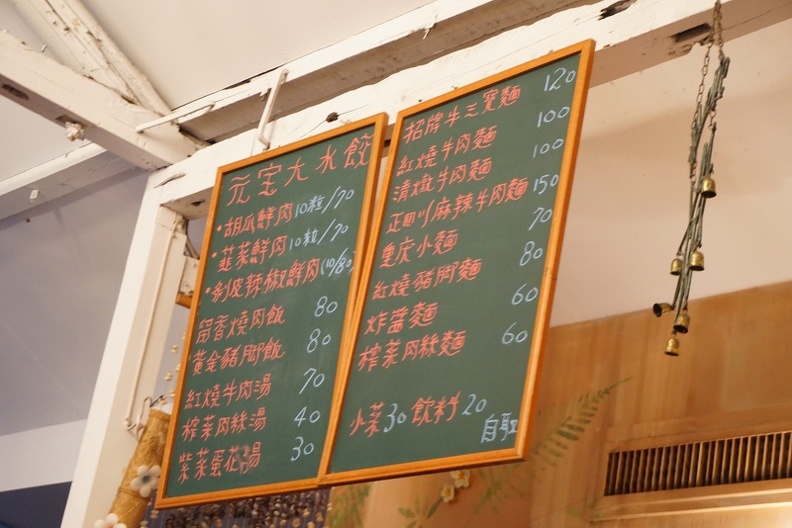 元宝大水餃
•胡瓜鮮肉10粒/70
•韮菜鮮肉10粒/70
•剝皮辣椒鮮肉(10/80)
留香燒肉飯 80
黃金豬腳飯 80
紅燒牛肉湯 70
榨菜肉絲湯 40
紫菜蛋花湯 30
招牌牛三寶麵 120
紅燒牛肉麵 100
清燉牛肉麵 100
正四川麻辣牛肉麵 150
重慶小麵 70
紅燒豬腳麵 80
炸醬麵 60
榨菜肉絲麵 60
小菜30 飲料20
自取